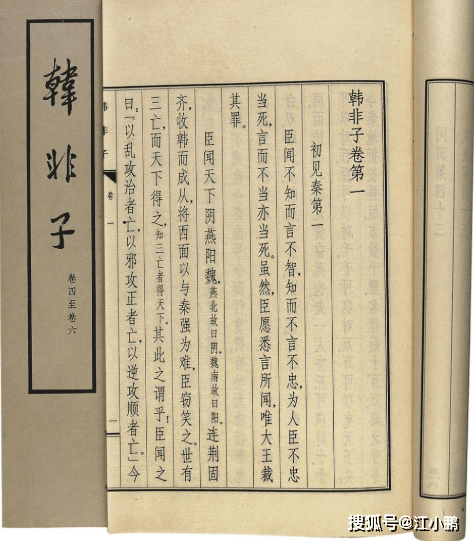 韓非子
卷四至卷六
韩非子卷第一
初见秦第一
臣闻不知而言不智,知而不言不忠,为人臣不忠
当死,言而不当亦当死。虽然,臣愿悉言所闻,唯大王裁
其罪。
臣闻天下阴燕阳魏,燕北故曰阴,魏南故曰阳。连荆固
齐,收韩而成从,将西面以与秦强为难,臣窃笑之。世有
三亡,而天下得之,知三亡者得天下。其此之谓乎!臣闻之
曰:「以乱攻治者亡,以邪攻正者亡,以逆攻顺者亡。」今
韩非子
卷一
一
搜狐号@江小鹏